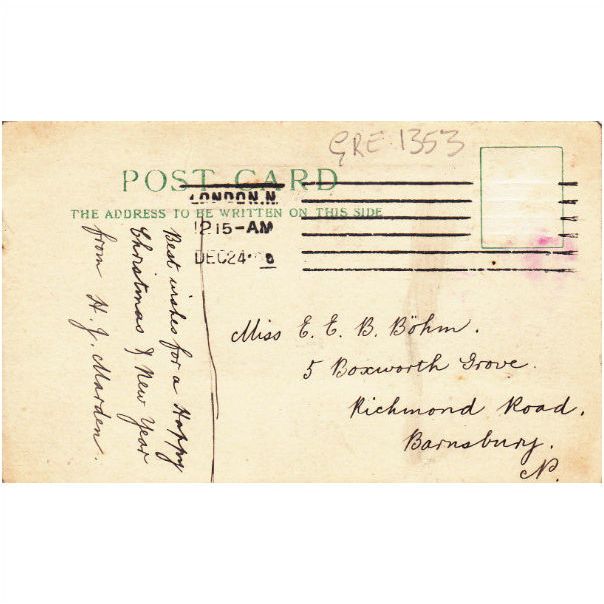 GRE 1353
POST CARD
THE ADDRESS TO BE WRITTEN ON THIS SIDE
LONDON.N.
12.15-AM
DEC 24
Best wishes for a Happy
Christmas & New Year
from H. J. Marden.
Miss E. E. B. Böhm.
5 Boxworth Grove.
Richmond Road.
Barnsbury.
N.